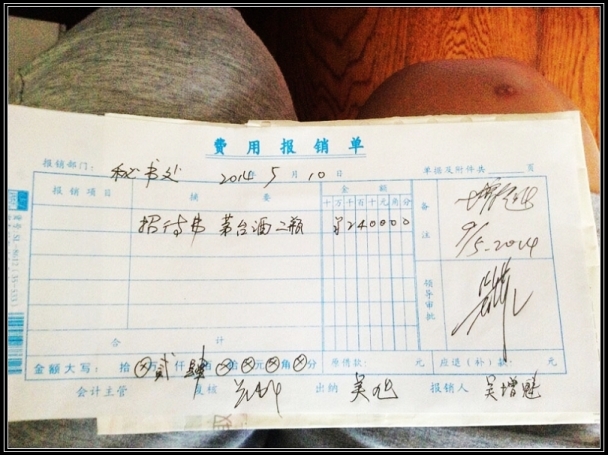 费用报销单
报销部门: 秘书处 2014年5月10日 单据及附件共 页
报销项目 摘要 金额 备注
十万千百十元角分
招待费 茅台酒二瓶 ¥240000
9/5-2014
领导审批
合计
金额大写: 拾 ⊗万 贰仟 肆百 ⊗拾 ⊗元 ⊗角 ⊗分 原借款: 元 应退(补)款: 元
会计主管 复核 出纳 报销人 吴增魁